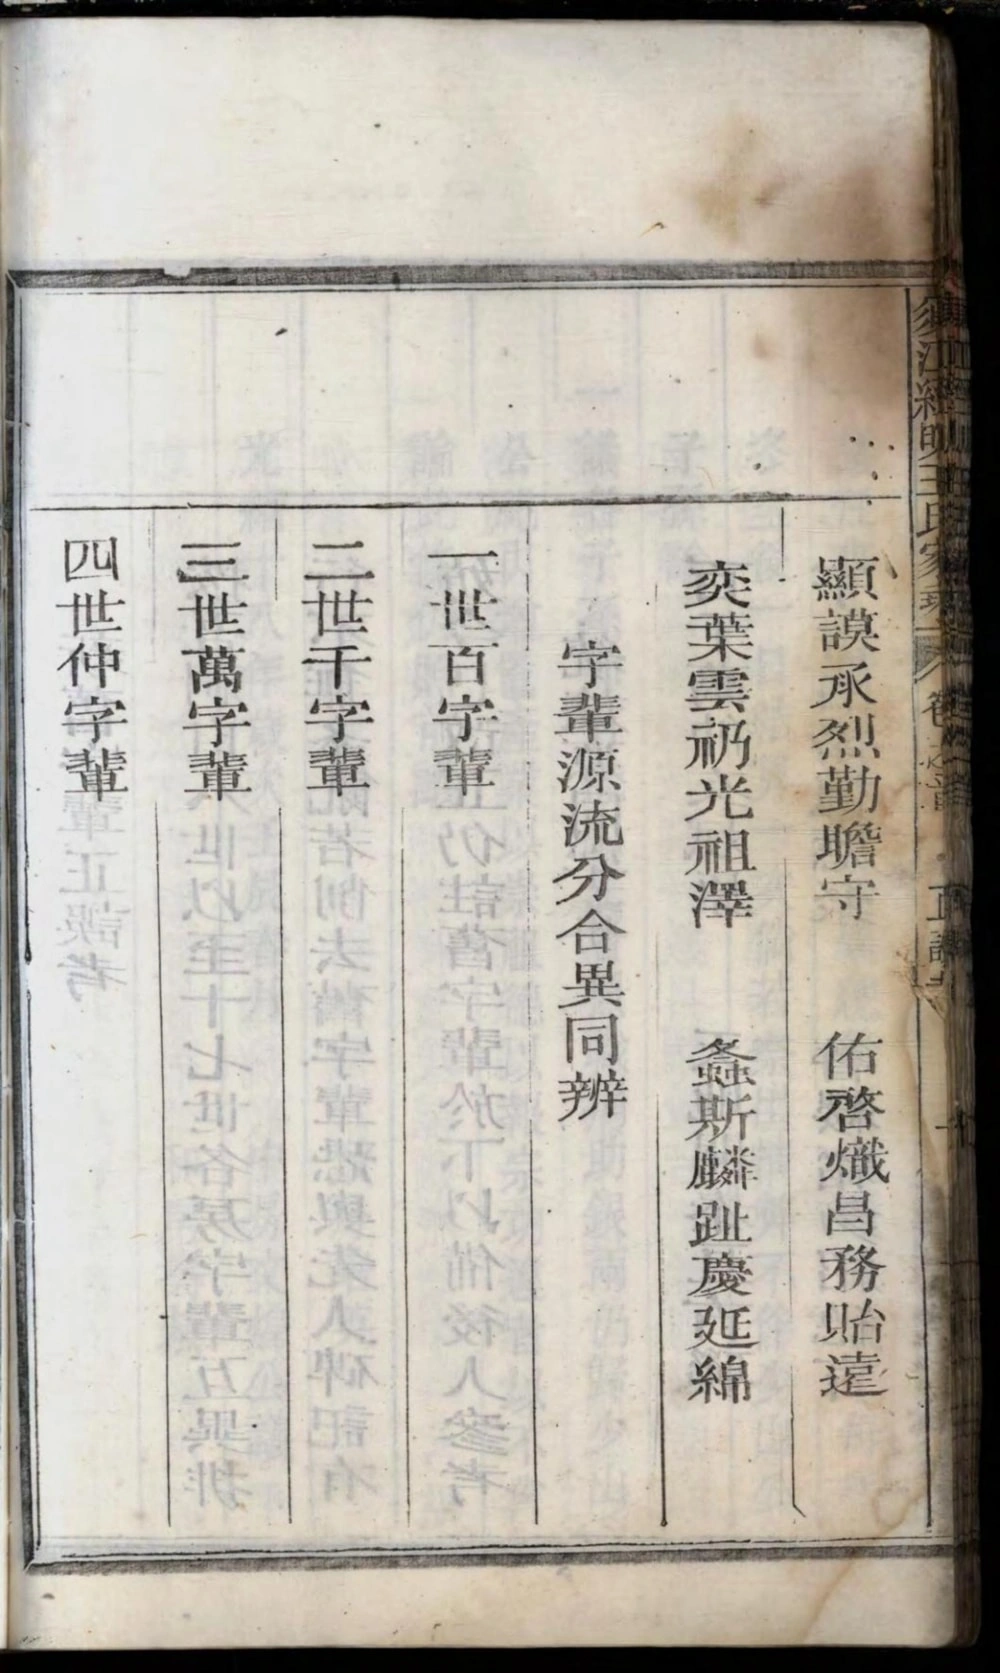 顯謨承烈勤瞻守　佑啓熾昌務貽遠
奕葉雲礽光祖澤　螽斯麟趾慶延綿
字輩源流分合異同辨
一世百字輩
二世千字輩
三世萬字輩
四世仲字輩